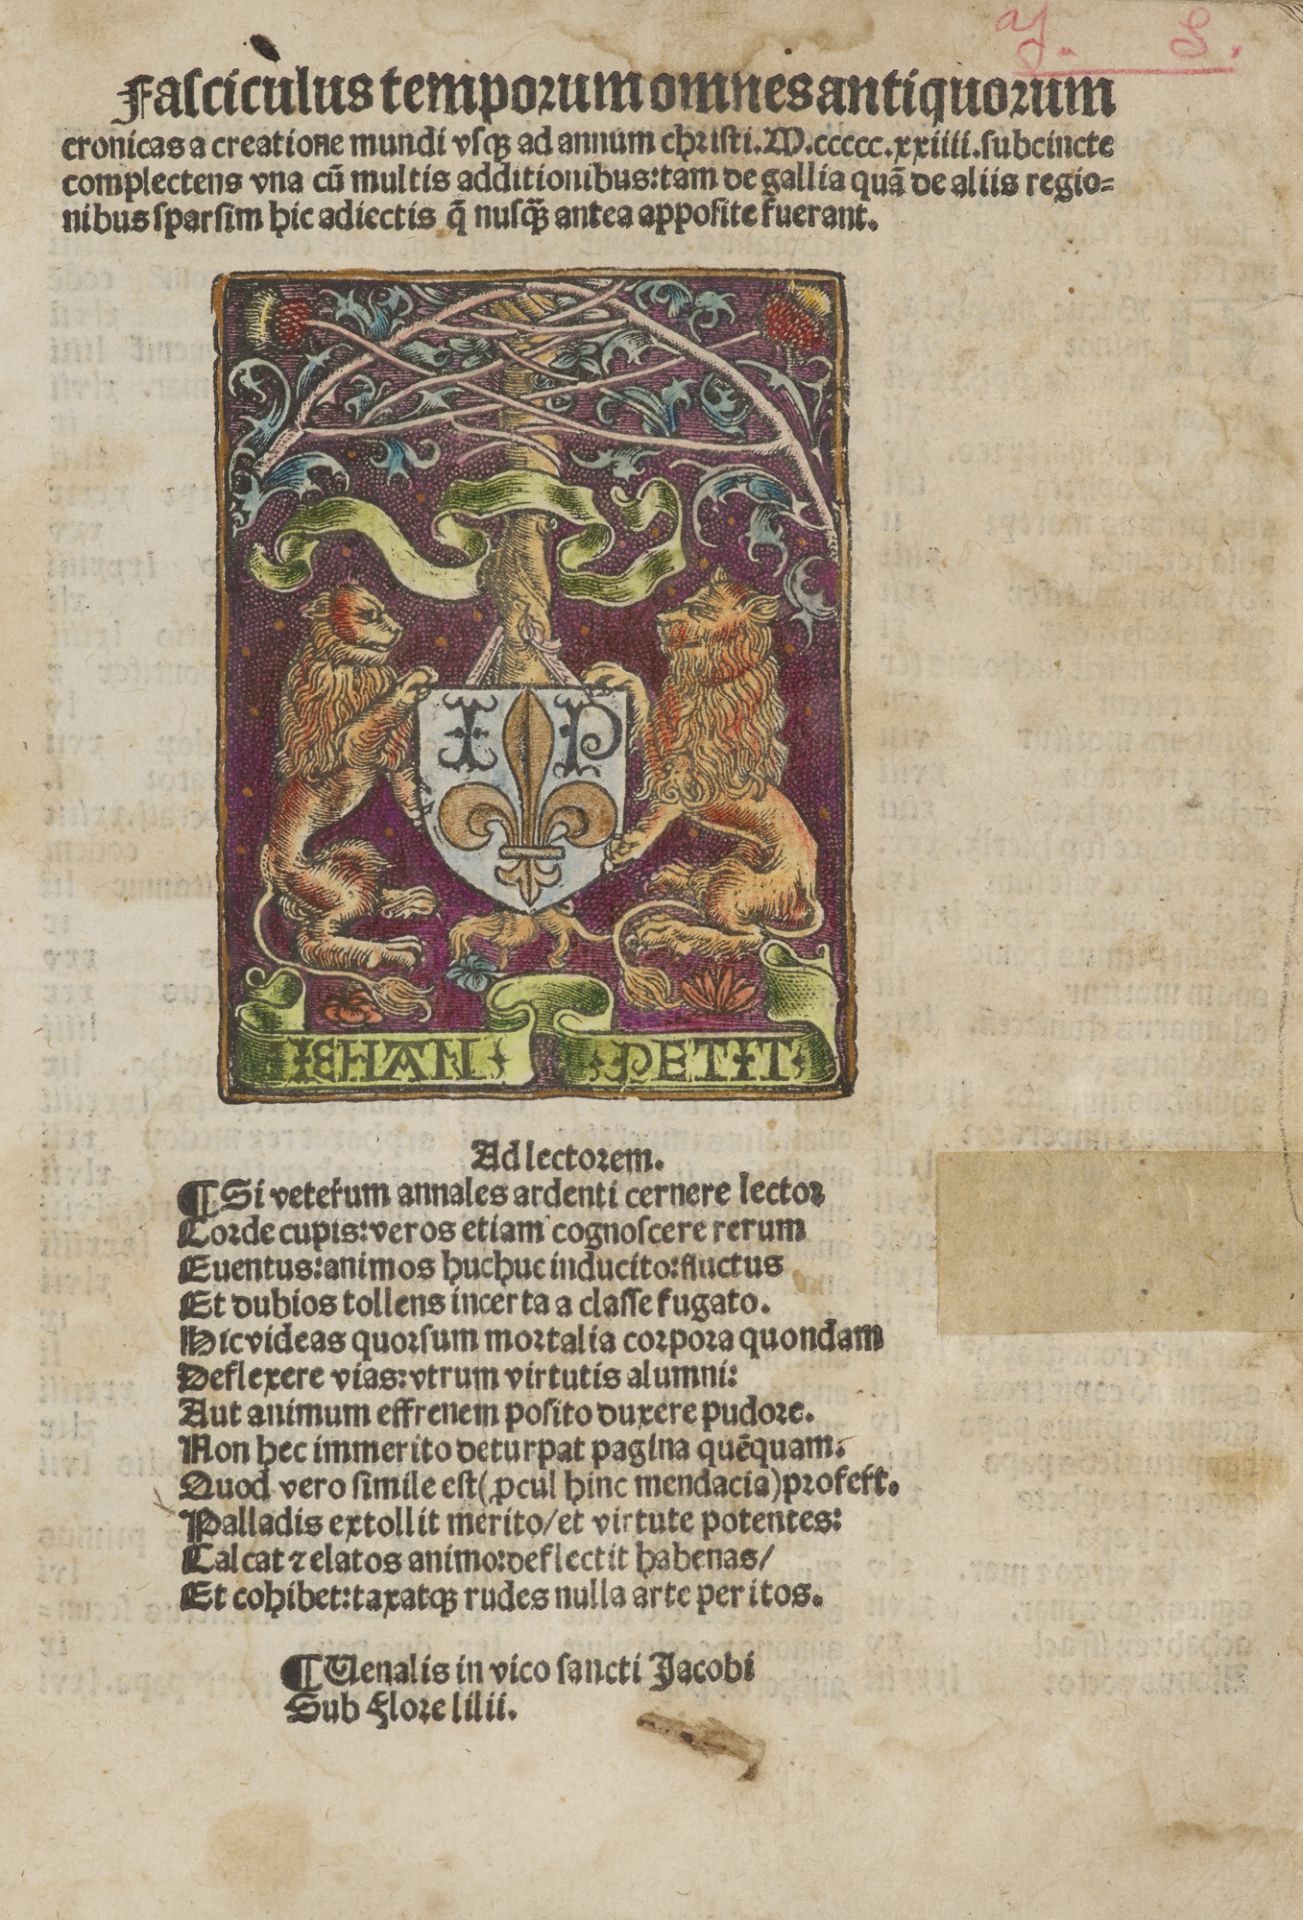 aj. S.
Fasciculus temporum omnes antiquorum
cronicas a creatione mundi vsqꝫ ad annum christi.M.ccccc.xxiiii.subcincte
complectens vna cũ multis additionibus:tam de gallia quã de aliis regio=
nibus sparsim hic adiectis q̃ nusqꝫ̃ antea apposite fuerant.
I P
IEHAN PETIT
Ad lectorem.
¶Si veterum annales ardenti cernere lector
Corde cupis:veros etiam cognoscere rerum
Euentus:animos huc huc inducito:fluctus
Et dubios tollens incerta a classe fugato.
Hic videas quorsum mortalia corpora quondam
Deflexere vias:vtrum virtutis alumni:
Aut animum effrenem posito duxere pudore.
Non hec immerito deturpat pagina quẽquam.
Quod vero simile est(ꝓcul hinc mendacia)profert.
Palladis extollit merito/et virtute potentes:
Calcat ⁊ elatos animo:deflectit habenas/
Et cohibet:taxatqꝫ rudes nulla arte peritos.
¶Uenalis in vico sancti Jacobi
Sub Flore lilii.